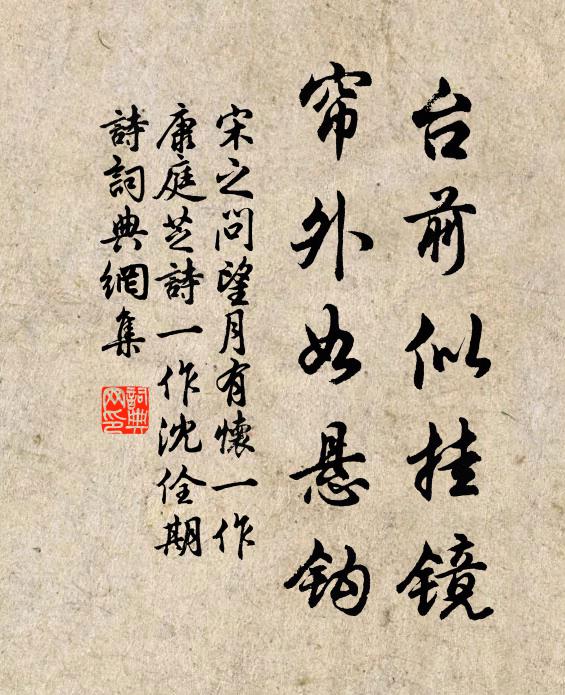 台前似挂镜
帘外如悬钩
宋之问望月有怀一作
康庭芝詩一作沈佺期
詩詞典網集
詞典网印